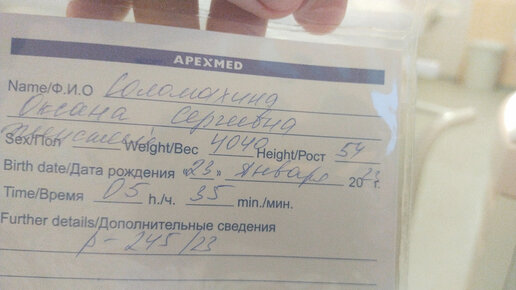 APEXMED
Name/Ф.И.О Соломахина
Оксана Сергеевна
Sex/Пол Weight/Вес 4040 Height/Рост 54
Birth date/Дата рождения «23» января 2023 г.
Time/Время 05 h./ч. 35 min./мин.
Further details/Дополнительные сведения
р-245/23